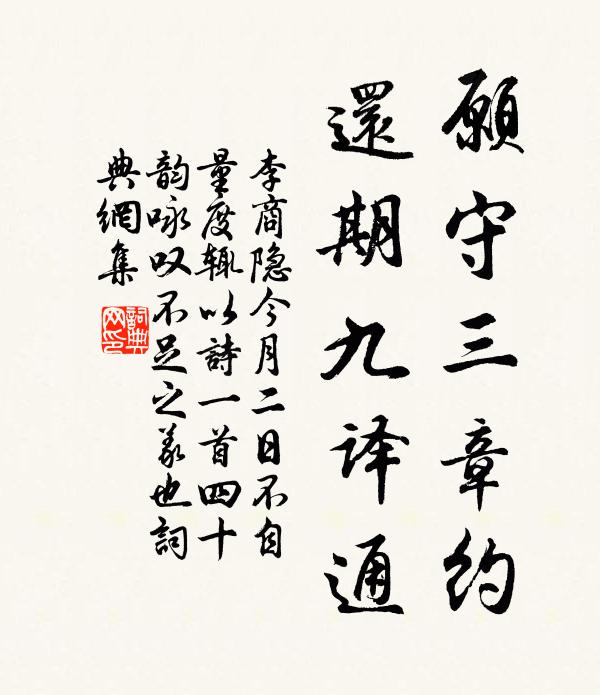 願守三章约
還期九译通
李商隐今月二日不自
量度辄以詩一首四十
韵咏叹不足之義也詞
典網集
詞典网印